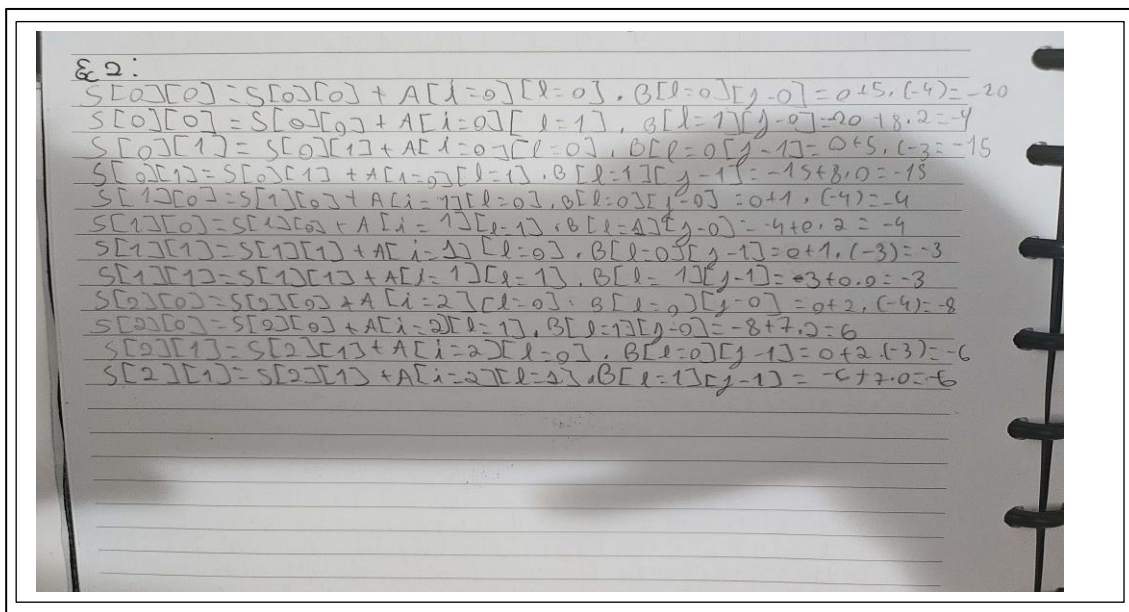 Ec 2:
S[0][0] = S[0][0] + A[i=0][l=0] . B[l=0][j-0] = 0+5.(-4)=-20
S[0][0] = S[0][0] + A[i=0][l=1] . B[l=1][j-0]=-20+8.2=-4
S[0][1] = S[0][1] + A[i=0][l=0] . B[l=0[j-1] = 0+5.(-3=-15
S[0][1] = S[0][1] + A[i=0][l=1] . B[l=1][j-1] = -15+8.0=-15
S[1][0] = S[1][0] + A[i=1][l=0] . B[l=0][j-0] = 0+1.(-4)=-4
S[1][0] = S[1][0] + A[i=1][l=1] . B[l=1][j-0] = -4+0.2 = -4
S[1][1] = S[1][1] + A[i=1][l=0] . B[l=0][j-1] = 0+1.(-3)=-3
S[1][1] = S[1][1] + A[i=1][l=1] . B[l=1][j-1] = -3+0.0=-3
S[2][0] = S[2][0] + A[i=2][l=0] . B[l=0][j-0] = 0+2.(-4)=-8
S[2][0] = S[2][0] + A[i=2][l=1] . B[l=1][j-0] = -8+7.2=6
S[2][1] = S[2][1] + A[i=2][l=0] . B[l=0][j-1] = 0+2.(-3)=-6
S[2][1] = S[2][1] + A[i=2][l=1] . B[l=1][j-1] = -6+7.0=-6